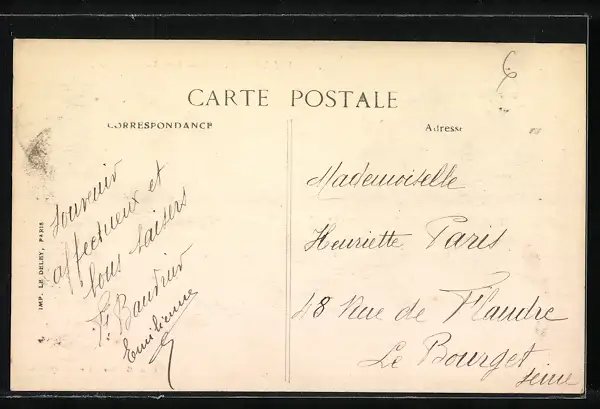 CARTE POSTALE
CORRESPONDANCE
Adresse
Souvenir
affectueux et
bons baisers
F. Baudrier
Emilienne
Mademoiselle
Henriette Paris
48 Rue de Flandre
Le Bourget
Seine
IMP. LE DELEY, PARIS